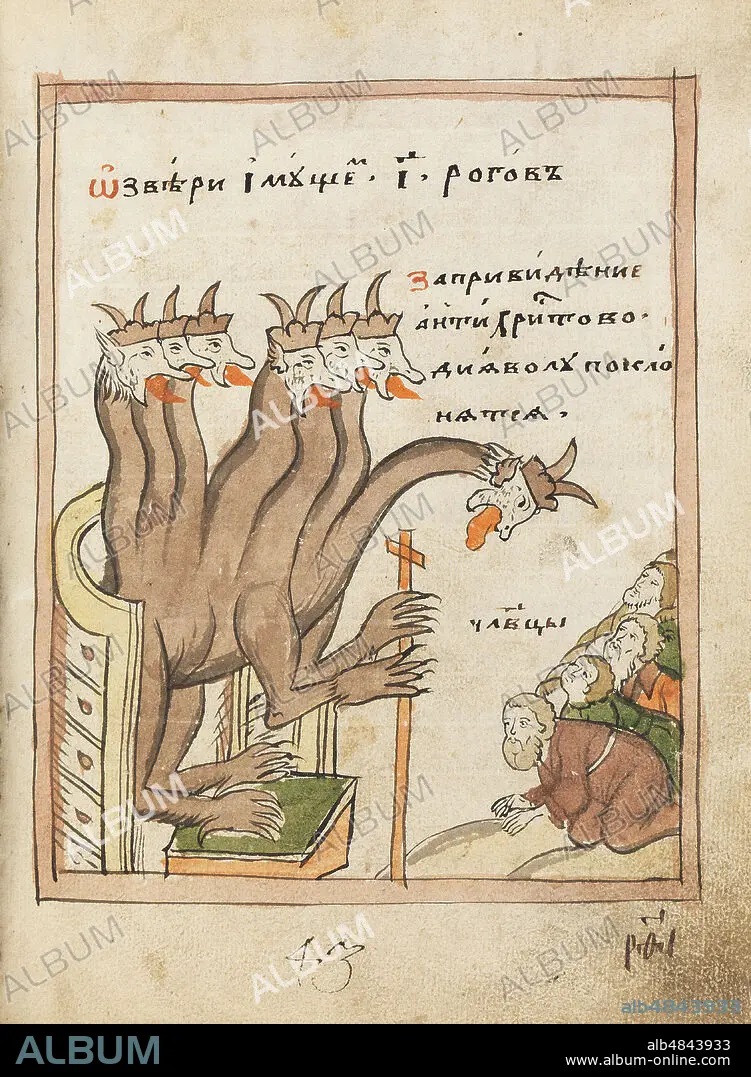 Ѿ звѣ́ри і҆мꙋ́щеⷨ. і҃. рого́въ
За привидѣние
а҆нти́хриⷭ҇тово.
диѧ́волꙋ покло
нѧтсѧ.
члв҃цы
ALBUM
alb4843933
www.album-online.com